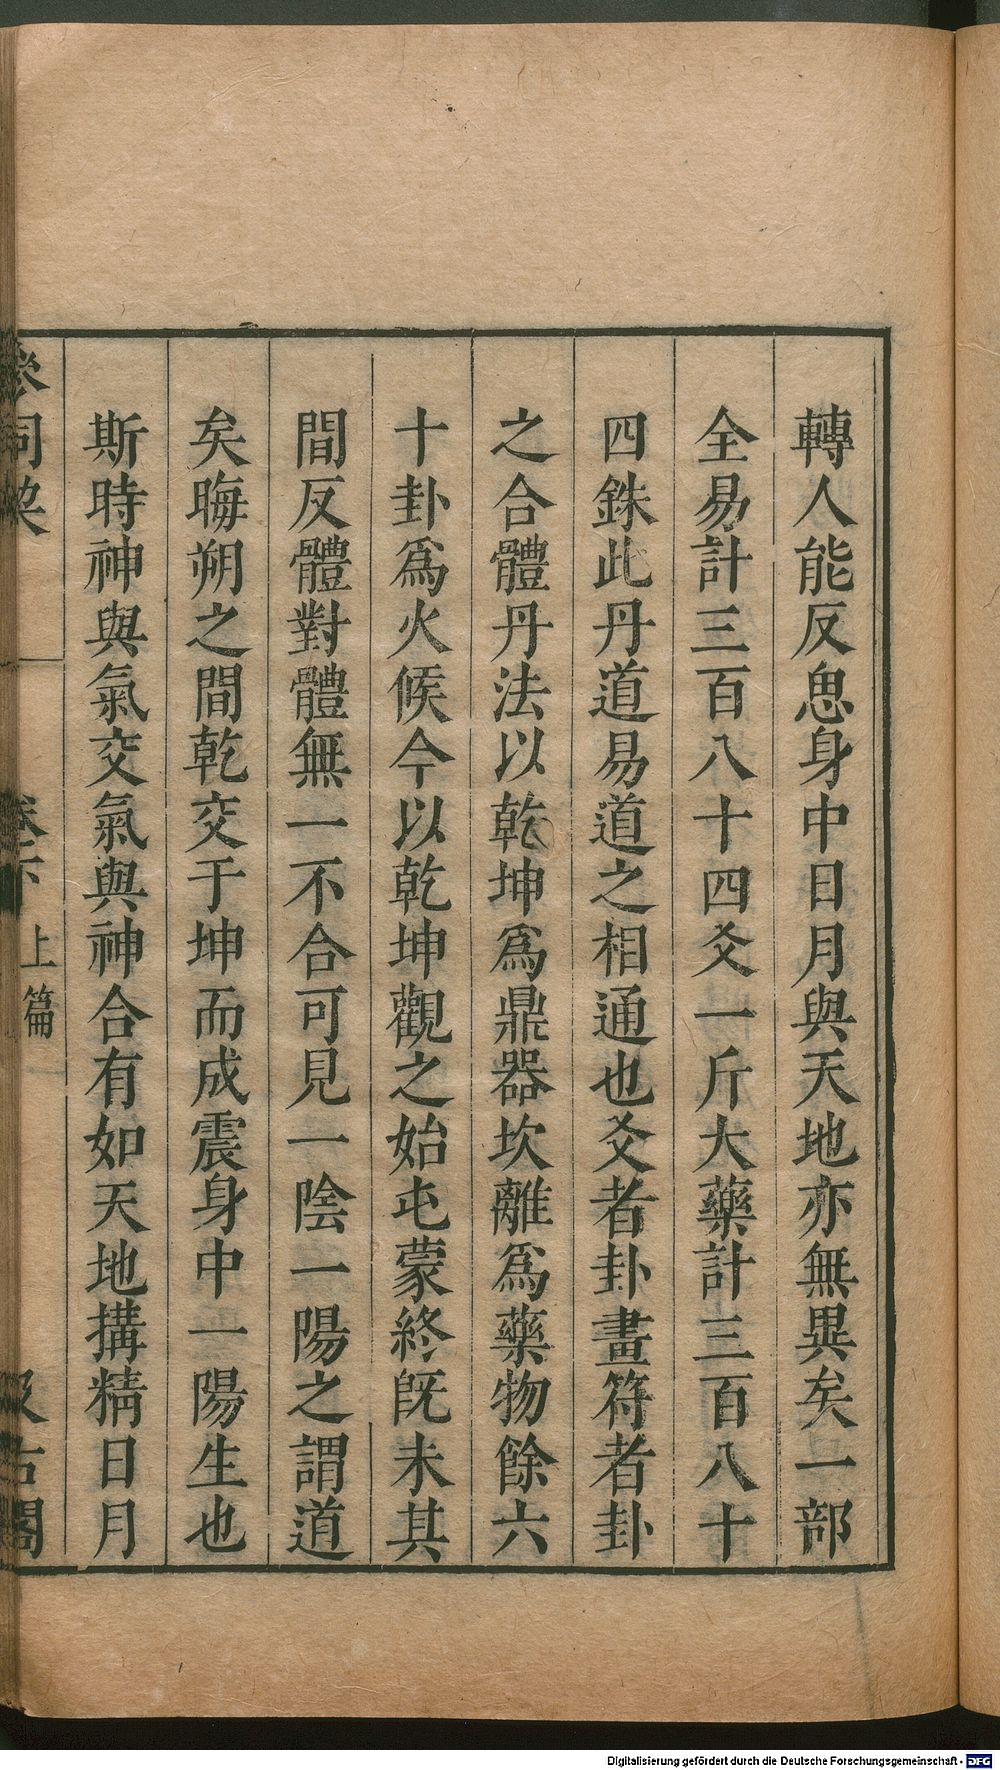 轉人能反思身中日月與天地亦無異矣一部
全易計三百八十四爻一斤大藥計三百八十
四銖此丹道易道之相通也爻者卦畫符者卦
之合體丹法以乾坤爲鼎器坎離爲藥物餘六
十卦爲火候今以乾坤觀之始屯蒙終旣未其
間反體對體無一不合可見一陰一陽之謂道
矣晦朔之間乾交于坤而成震身中一陽生也
斯時神與氣交氣與神合有如天地搆精日月
參同契 卷下 上篇 汲古閣
Digitalisierung gefördert durch die Deutsche Forschungsgemeinschaft - DFG